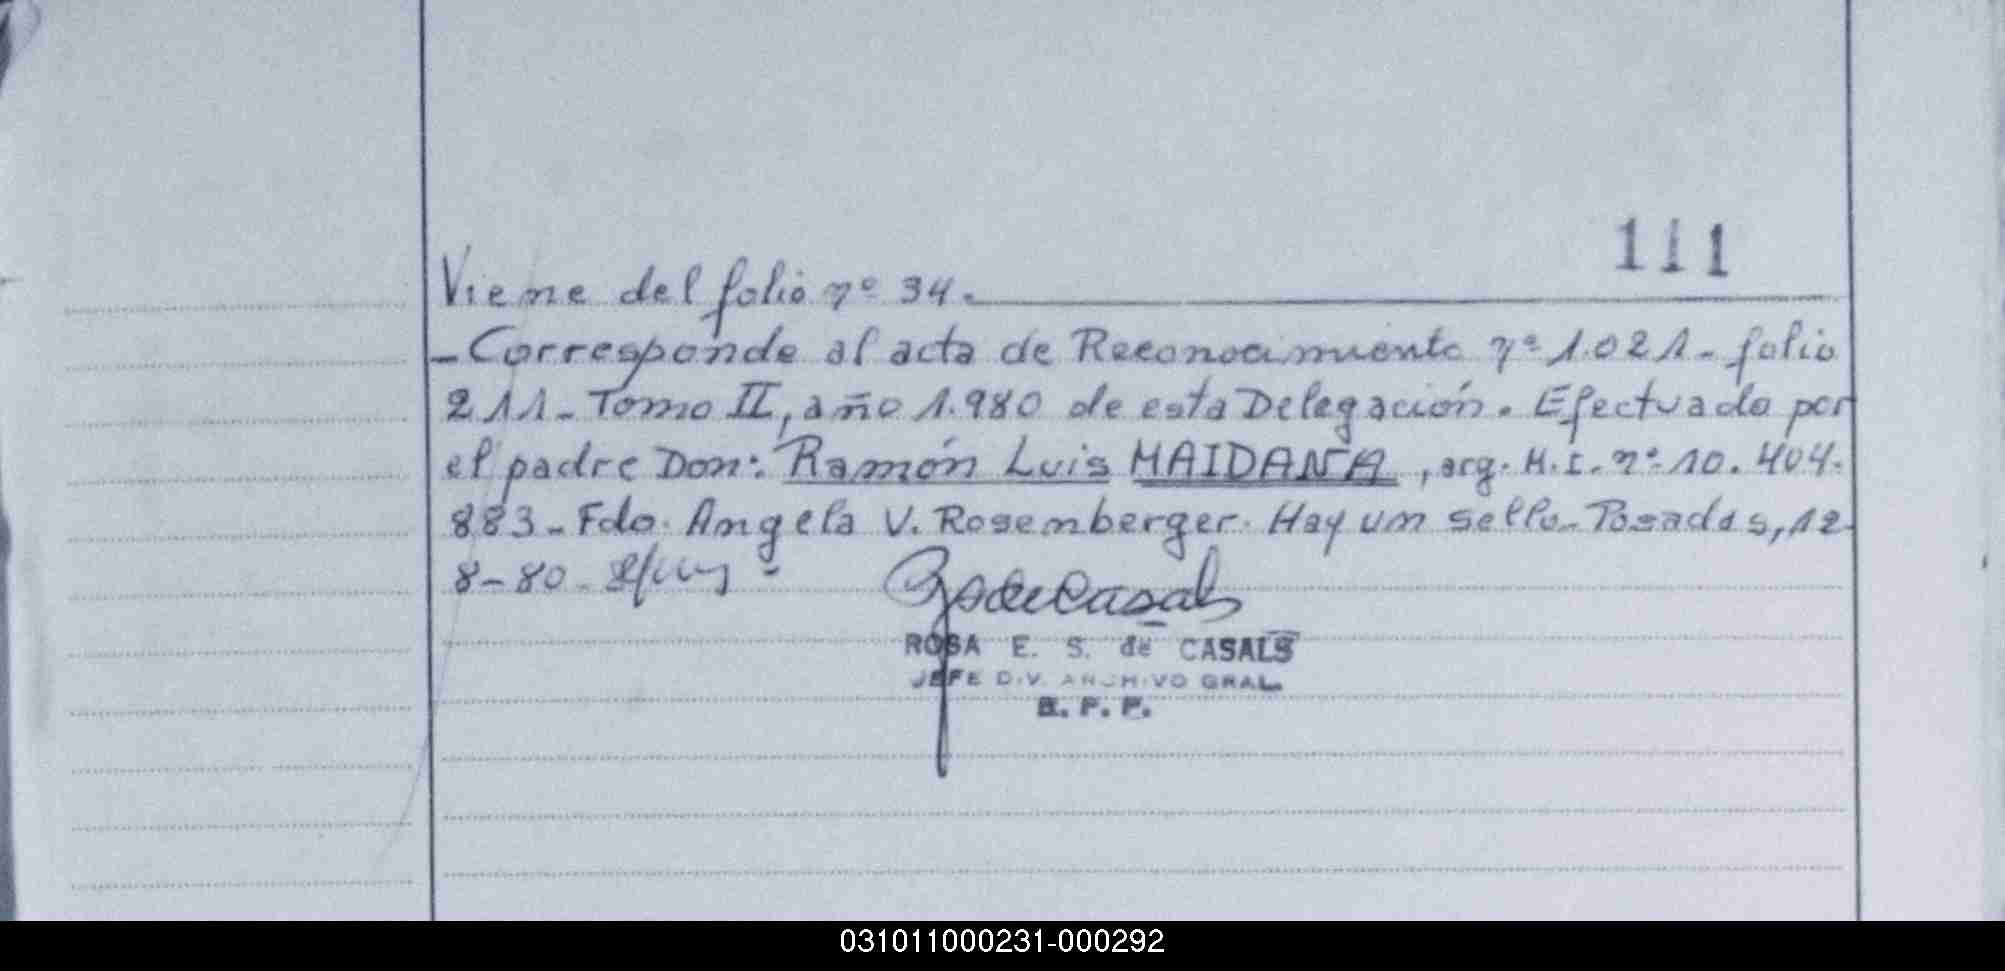 111
Viene del folio nº 34.
- Corresponde al acta de Reconocimiento nº 1.021 - folio
211 - Tomo II, año 1.980 de esta Delegación. Efectuado por
el padre Don: Ramón Luis MAIDANA, arg. M.I. nº 10.404.
883 - Fdo. Angela V. Rosemberger. Hay un sello - Posadas, 12
8-80 -
ROSA E. S. de CASALS
JEFE DIV. ARCHIVO GRAL.
R. P. P.
031011000231-000292